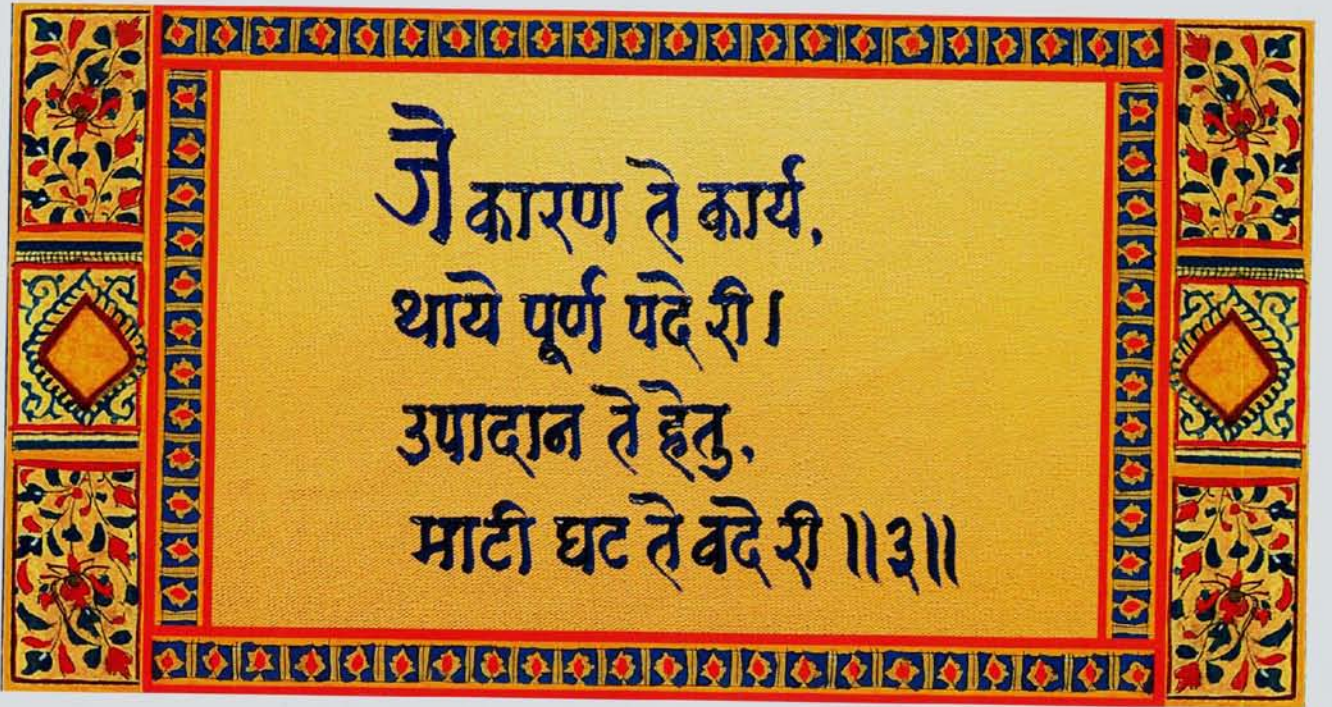 जे कारण ते कार्य,
थाये पूर्ण पदे री।
उपादान ते हेतु,
माटी घट ते वदे री ॥३॥